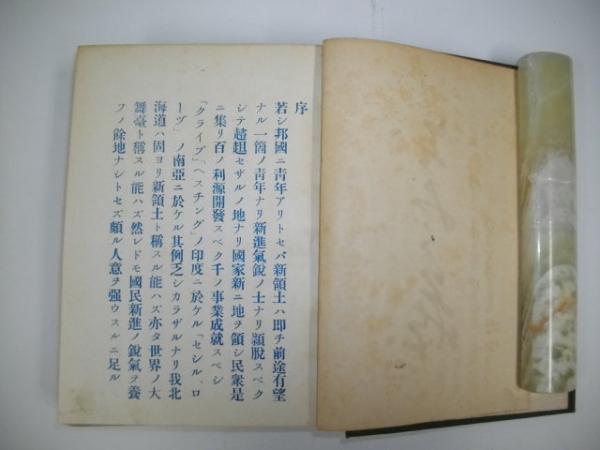 序
若シ邦國ニ靑年アリトセバ新領土ハ卽チ前途有望
ナル一箇ノ靑年ナリ新進氣銳ノ士ナリ穎脫スベク
シテ趦趄セザルノ地ナリ國家新ニ地ヲ領シ民衆是
ニ集リ百ノ利源開發スベク千ノ事業成就スベシ
「クライブ」「ヘスチング」ノ印度ニ於ケル「セシル、ロ
ーヅ」ノ南亞ニ於ケル其例乏シカラザルナリ我北
海道ハ固ヨリ新領土ト稱スル能ハズ亦タ世界ノ大
舞臺ト稱スル能ハズ然レドモ國民新進ノ銳氣ヲ養
フノ餘地ナシトセズ頗ル人意ヲ强ウスルニ足ル